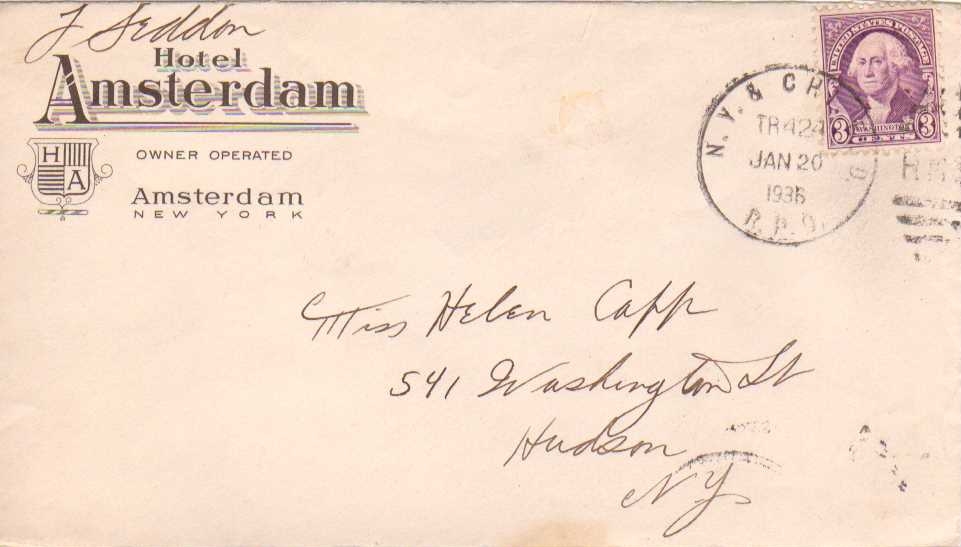 J Seddon
Hotel
Amsterdam
H
A
OWNER OPERATED
Amsterdam
NEW YORK
UNITED STATES POSTAGE
3
WASHINGTON
3
N. Y. & CH
TR424
JAN 20
1936
R.P.O.
Miss Helen Capp
541 Washington St
Hudson
NY